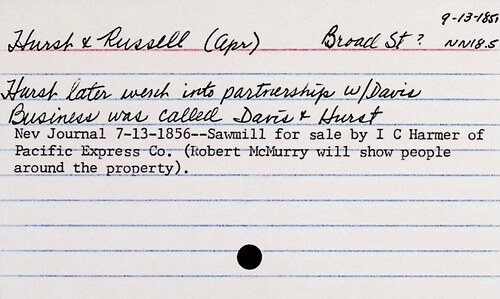 9-13-185
Hurst & Russell (Apr) Broad St? NN18.5
Hurst later went into partnership w/Davis
Business was called Davis & Hurst
Nev Journal 7-13-1856--Sawmill for sale by I C Harmer of
Pacific Express Co. (Robert McMurry will show people
around the property).